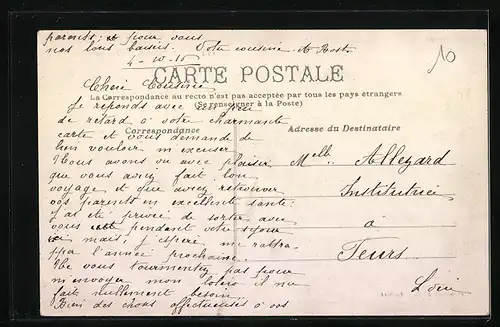 parents, et pour vous
nos bons baisers. Votre cousine A
4-10-15
CARTE POSTALE
La Correspondance au recto n'est pas acceptée par tous les pays étrangers
(Se renseigner à la Poste)
Correspondance
Adresse du Destinataire
Chère Cousine
Je réponds avec un peu
de retard à votre charmante
carte et vous demande de
bien vouloir m'excuser.
Nous avons vu avec plaisir
que vous aviez fait bon
voyage et que aviez retrouvé
vos parents en excellente santé.
J'ai été privée de sortir avec
vous pendant votre séjour
ici mais, j'espère me rattra-
per l'année prochaine.
Ne vous tourmentez pas pour
m'envoyer mon boléro il me
fait nullement besoin.
Bien des choses affectueuses à vos
Melle Allegard
Institutrice
à
Feurs
Loire
10